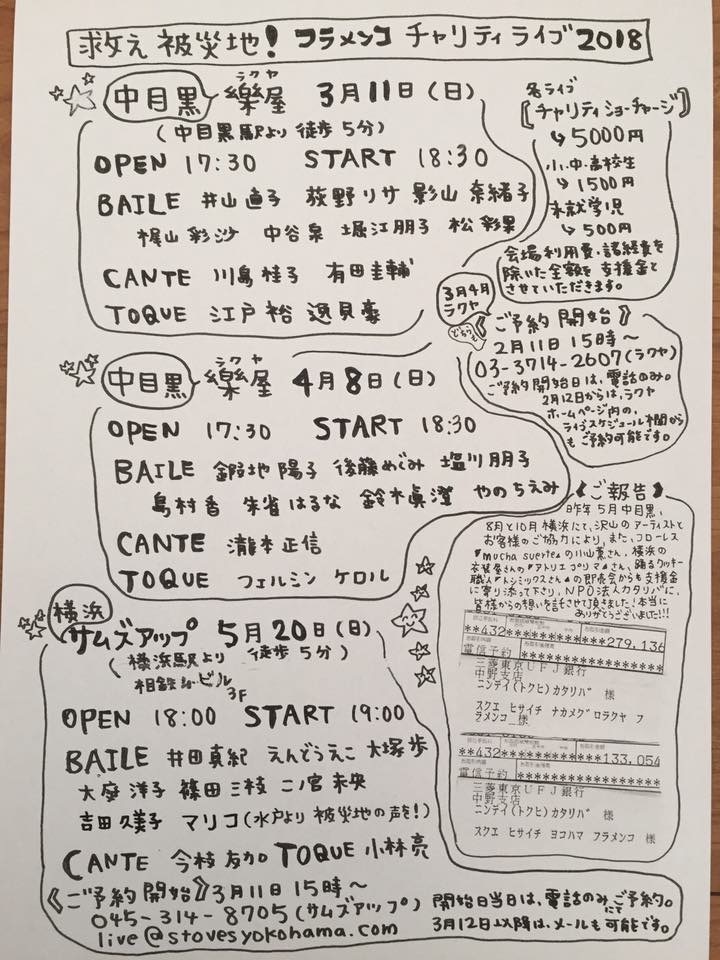 救え被災地! フラメンコ チャリティライブ2018
中目黒 樂屋 ラクヤ 3月11日(日)
(中目黒駅より徒歩5分)
OPEN 17:30 START 18:30
BAILE 井山直子 荻野リサ 影山奈緒子
梶山彩沙 中谷泉 堀江朋子 松彩果
CANTE 川島桂子 有田圭輔
TOQUE 江戸裕 逸見豪
各ライブ
【チャリティショーチャージ】
↳5000円
小・中・高校生
↳1500円
未就学児
↳500円
会場利用費・諸経費を
除いた全額を支援金と
させていただきます。
3月4月
ラクヤ
どちらも
《ご予約開始》
2月11日15時〜
03-3714-2607(ラクヤ)
ご予約開始日は、電話のみ。
2月12日からは、ラクヤ
ホームページ内の、
ライブスケジュール欄から
もご予約可能です。
中目黒 樂屋 ラクヤ 4月8日(日)
OPEN 17:30 START 18:30
BAILE 鍜地陽子 後藤めぐみ 塩川朋子
島村香 朱雀はるな 鈴木眞澄 やのちえみ
CANTE 瀧本正信
TOQUE フェルミン ケロル
《ご報告》
昨年5月中目黒、
8月と10月横浜にて、沢山のアーティストと
お客様のご協力により、また、コローレス
"mucha suerte"の川山薫さん、横浜の
衣装屋さんの"アトリエプリマ"さん、踊るクッキー
職人"トシミックスさん"の即売会からも支援金
に寄り添って下さり、NPO法人カタリバに、
皆様からの想いを託させて頂きました!本当に
ありがとうございました!!!
**432********279,136
電信予約
三菱東京UFJ銀行
中野支店
ニンテイ(トクヒ)カタリバ 様
スクエ ヒサイチ ナカメグロラクヤ フ
ラメンコ 様
**432********133,054
電信予約
三菱東京UFJ銀行
中野支店
ニンテイ(トクヒ)カタリバ 様
スクエ ヒサイチ ヨコハマ フラメンコ 様
横浜 サムズアップ 5月20日(日)
(横浜駅より徒歩5分)
相鉄ムービル
3F
OPEN 18:00 START 19:00
BAILE 井田真紀 えんどうえこ 大塚歩
大庭洋子 篠田三枝 二ノ宮未央
吉田久美子 マリコ(水戸より被災地の声を!)
CANTE 今枝友加 TOQUE 小林亮
《ご予約開始》3月11日15時〜
045-314-8705(サムズアップ)
live@stovesyokohama.com
開始日当日は、電話のみにてご予約。
3月12日以降は、メールも可能です。